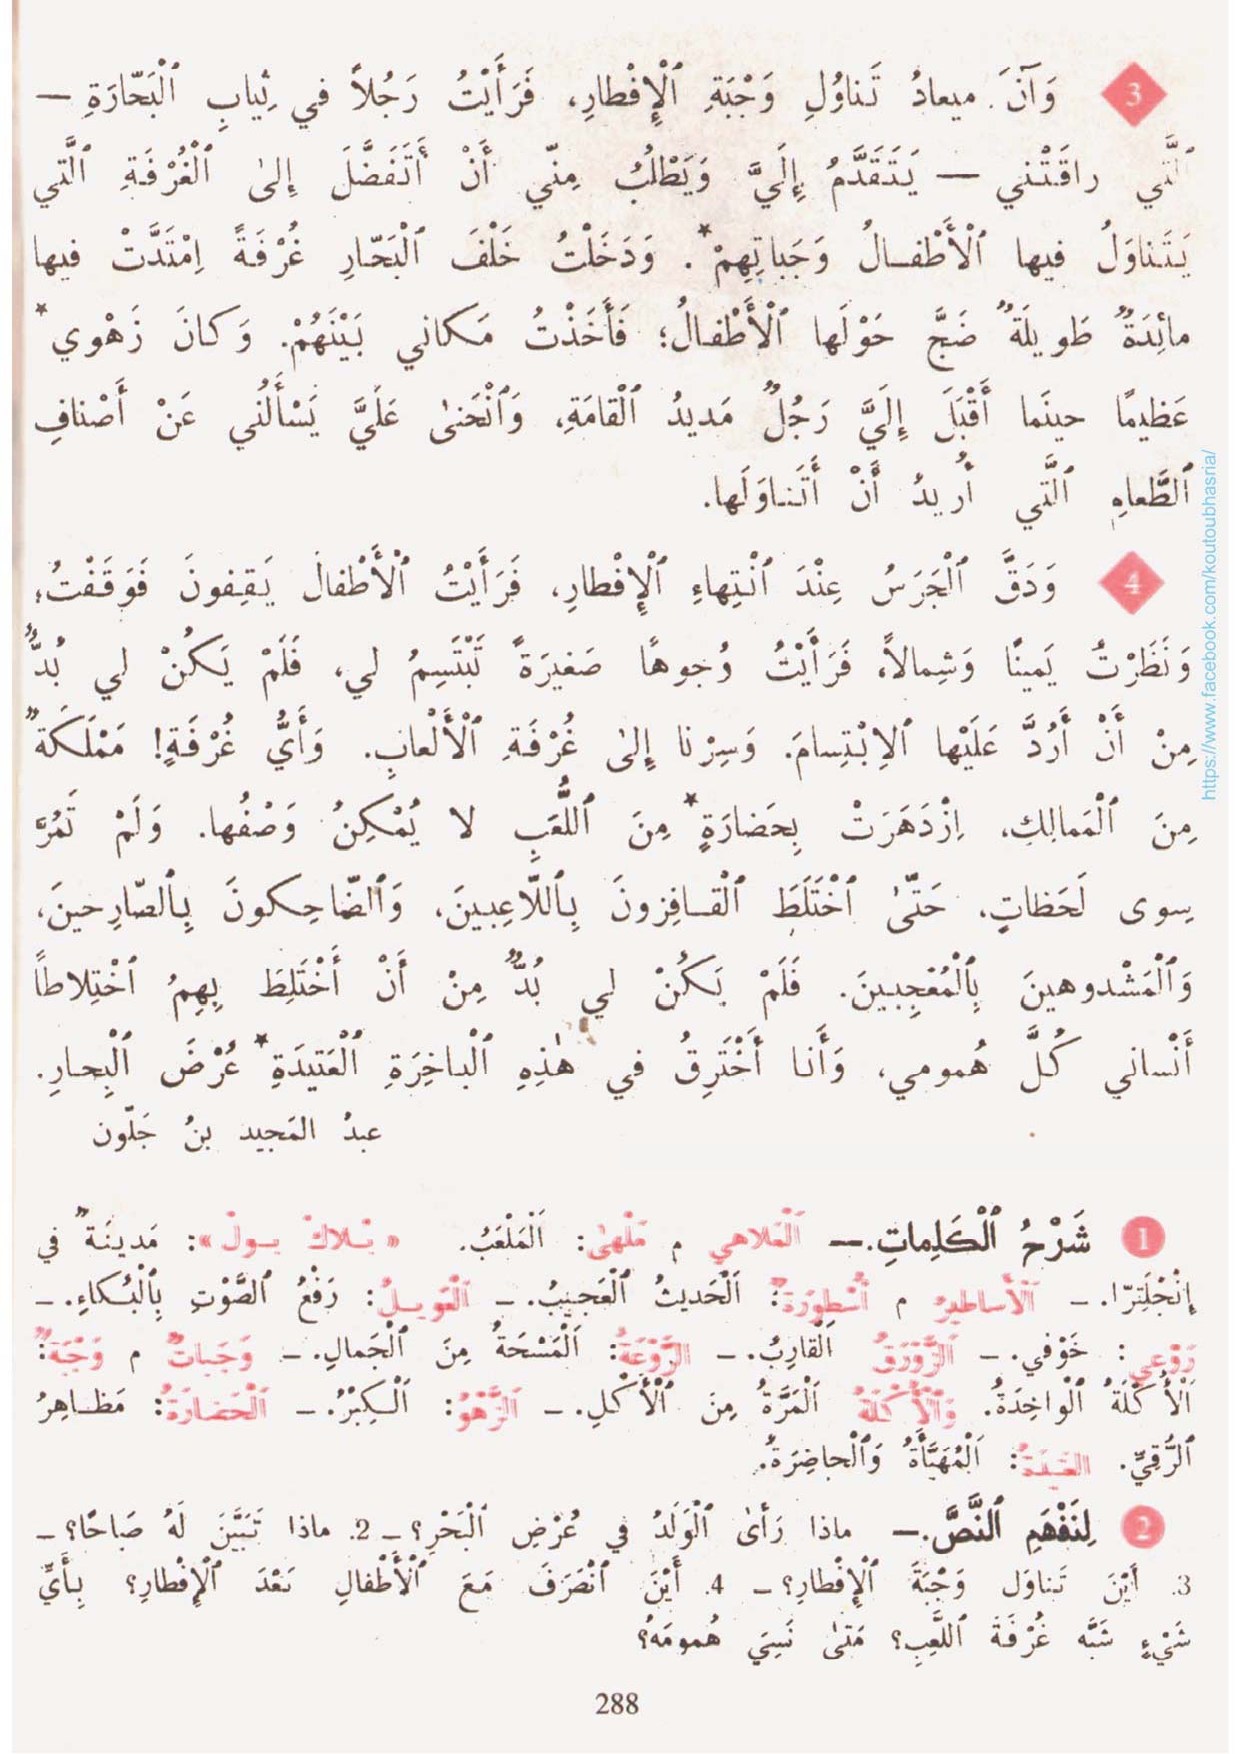 3 وَآنَ ميعادُ تَناوُلِ وَجْبَةِ ٱلْإِفْطارِ، فَرَأَيْتُ رَجُلاً في ثِيابِ ٱلْبَحّارَةِ —
ٱلَّتي راقَتْني — يَتَقَدَّمُ إِلَيَّ وَيَطْلُبُ مِنّي أَنْ أَتَفَضَّلَ إِلىٰ ٱلْغُرْفَةِ ٱلَّتي
يَتَناوَلُ فيها ٱلْأَطْفالُ وَجَباتِهِمْ*. وَدَخَلْتُ خَلْفَ ٱلْبَحّارِ غُرْفَةً اِمْتَدَّتْ فيها
مائِدَةٌ طَويلَةٌ ضَجَّ حَوْلَها ٱلْأَطْفالُ؛ فَأَخَذْتُ مَكاني بَيْنَهُمْ. وَكانَ زَهْوي*
عَظيمًا حينَما أَقْبَلَ إِلَيَّ رَجُلٌ مَديدُ ٱلْقامَةِ، وَٱنْحَنىٰ عَلَيَّ يَسْأَلُني عَنْ أَصْنافِ
ٱلطَّعامِ ٱلَّتي أُريدُ أَنْ أَتَناوَلَها.
4 وَدَقَّ ٱلْجَرَسُ عِنْدَ ٱنْتِهاءِ ٱلْإِفْطارِ، فَرَأَيْتُ ٱلْأَطْفالَ يَقِفونَ فَوَقَفْتُ،
وَنَظَرْتُ يَمينًا وَشِمالاً، فَرَأَيْتُ وُجوهًا صَغيرَةً تَبْتَسِمُ لي، فَلَمْ يَكُنْ لي بُدٌّ
مِنْ أَنْ أَرُدَّ عَلَيْها ٱلاِبْتِسامَ. وَسِرْنا إِلىٰ غُرْفَةِ ٱلْأَلْعابِ. وَأَيُّ غُرْفَةٍ! مَمْلَكَةٌ
مِنَ ٱلْمَمالِكِ، اِزْدَهَرَتْ بِحَضارَةٍ* مِنَ ٱللُّعَبِ لا يُمْكِنُ وَصْفُها. وَلَمْ تَمُرَّ
سِوى لَحَظاتٍ، حَتّىٰ ٱخْتَلَطَ ٱلْقافِزونَ بِٱللّاعِبينَ، وَٱلضّاحِكونَ بِٱلصّارِخينَ،
وَٱلْمَشْدوهينَ بِٱلْمُعْجِبينَ. فَلَمْ يَكُنْ لي بُدٌّ مِنْ أَنْ أَخْتَلِطَ بِهِمُ ٱخْتِلاطاً
أَنْساني كُلَّ هُمومي، وَأَنا أَخْتَرِقُ في هٰذِهِ ٱلْباخِرَةِ ٱلْعَتيدَةِ* عُرْضَ ٱلْبِحارِ.
عبدُ المَجيد بنُ جَلّون
1 شَرْحُ ٱلْكَلِماتِ.— اَلْمَلاهي م مَلْهىٰ: اَلْمَلْعَبُ. « بْلاكْ بـولْ »: مَدينَةٌ في
إِنْجْلِتِرّا. — اَلْأَساطيرُ م أُسْطورَةٌ: اَلْحَديثُ ٱلْعَجيبُ. — اَلْعَويـلُ: رَفْعُ ٱلصَّوْتِ بِٱلْبُكاءِ. —
رَوْعي: خَوْفي. — اَلزَّوْرَقُ ٱلْقارِبُ. — اَلرَّوْعَةُ: اَلْمَسْحَةُ مِنَ ٱلْجَمالِ. — وَجَباتٌ م وَجْبَةٌ:
اَلْأَكْلَةُ ٱلْواحِدَةُ. وَٱلْأَكْلَةُ اَلْمَرَّةُ مِنَ ٱلْأَكْلِ. — اَلزَّهْوُ: اَلْكِبْرُ. — اَلْحَضارَةُ: مَظاهِرُ
ٱلرُّقِيِّ. العَتيدَةُ: اَلْمُهَيَّأَةُ وَٱلْحاضِرَةُ.
2 لِنَفْهَمِ ٱلنَّصَّ.— ماذا رَأىٰ ٱلْوَلَدُ في عُرْضِ ٱلْبَحْرِ؟ — 2. ماذا تَبَيَّنَ لَهُ صَباحًا؟ —
3. أَيْنَ تَناوَلَ وَجْبَةَ ٱلْإِفْطارِ؟ — 4. أَيْنَ ٱنْصَرَفَ مَعَ ٱلْأَطْفالِ بَعْدَ ٱلْإِفْطارِ؟ بِأَيِّ
شَيْءٍ شَبَّه غُرْفَةَ ٱللَّعِبِ؟ مَتىٰ نَسِيَ هُمومَهُ؟
288
https://www.facebook.com/koutoubhasria/